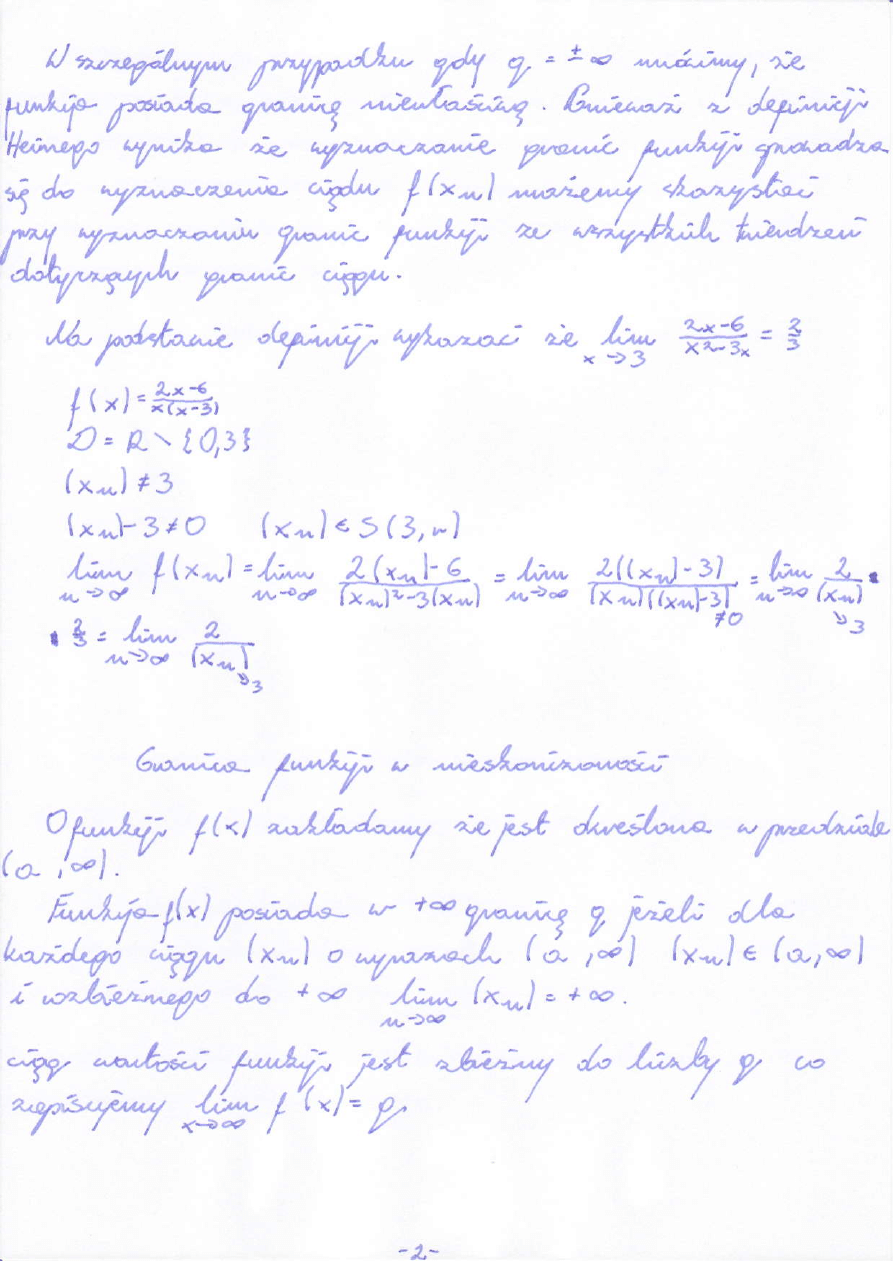 W szczególnym przypadku gdy g = ±∞ mówimy, że
funkcja posiada granicę niewłaściwą. Ponieważ z definicji
Heinego wynika że wyznaczanie granic funkcji sprowadza
się do wyznaczenia ciągu f(xn) możemy skorzystać
przy wyznaczaniu granic funkcji ze wszystkich twierdzeń
dotyczących granic ciągu.
Na podstawie definicji wykazać że lim x→3 (2x-6)/(x²-3x) = 2/3
f(x) = (2x-6)/(x(x-3))
D = R \ {0,3}
(xn) ≠ 3
(xn)-3 ≠ 0 (xn) ∈ S(3, r)
lim n→∞ f(xn) = lim n→∞ (2(xn)-6)/((xn)²-3(xn)) = lim n→∞ 2((xn)-3)/((xn)((xn)-3)) ≠0 = lim n→∞ 2/(xn) →3 ▪
▪ 2/3 = lim n→∞ 2/(xn) →3
Granica funkcji w nieskończoności
O funkcji f(x) zakładamy że jest określona w przedziale
(a, ∞).
Funkcja f(x) posiada w +∞ granicę g jeżeli dla
każdego ciągu (xn) o wyrazach (a, ∞) (xn) ∈ (a, ∞)
i rozbieżnego do +∞ lim n→∞ (xn) = +∞.
ciąg wartości funkcji jest zbieżny do liczby g co
zapisujemy lim x→∞ f(x) = g
-2-